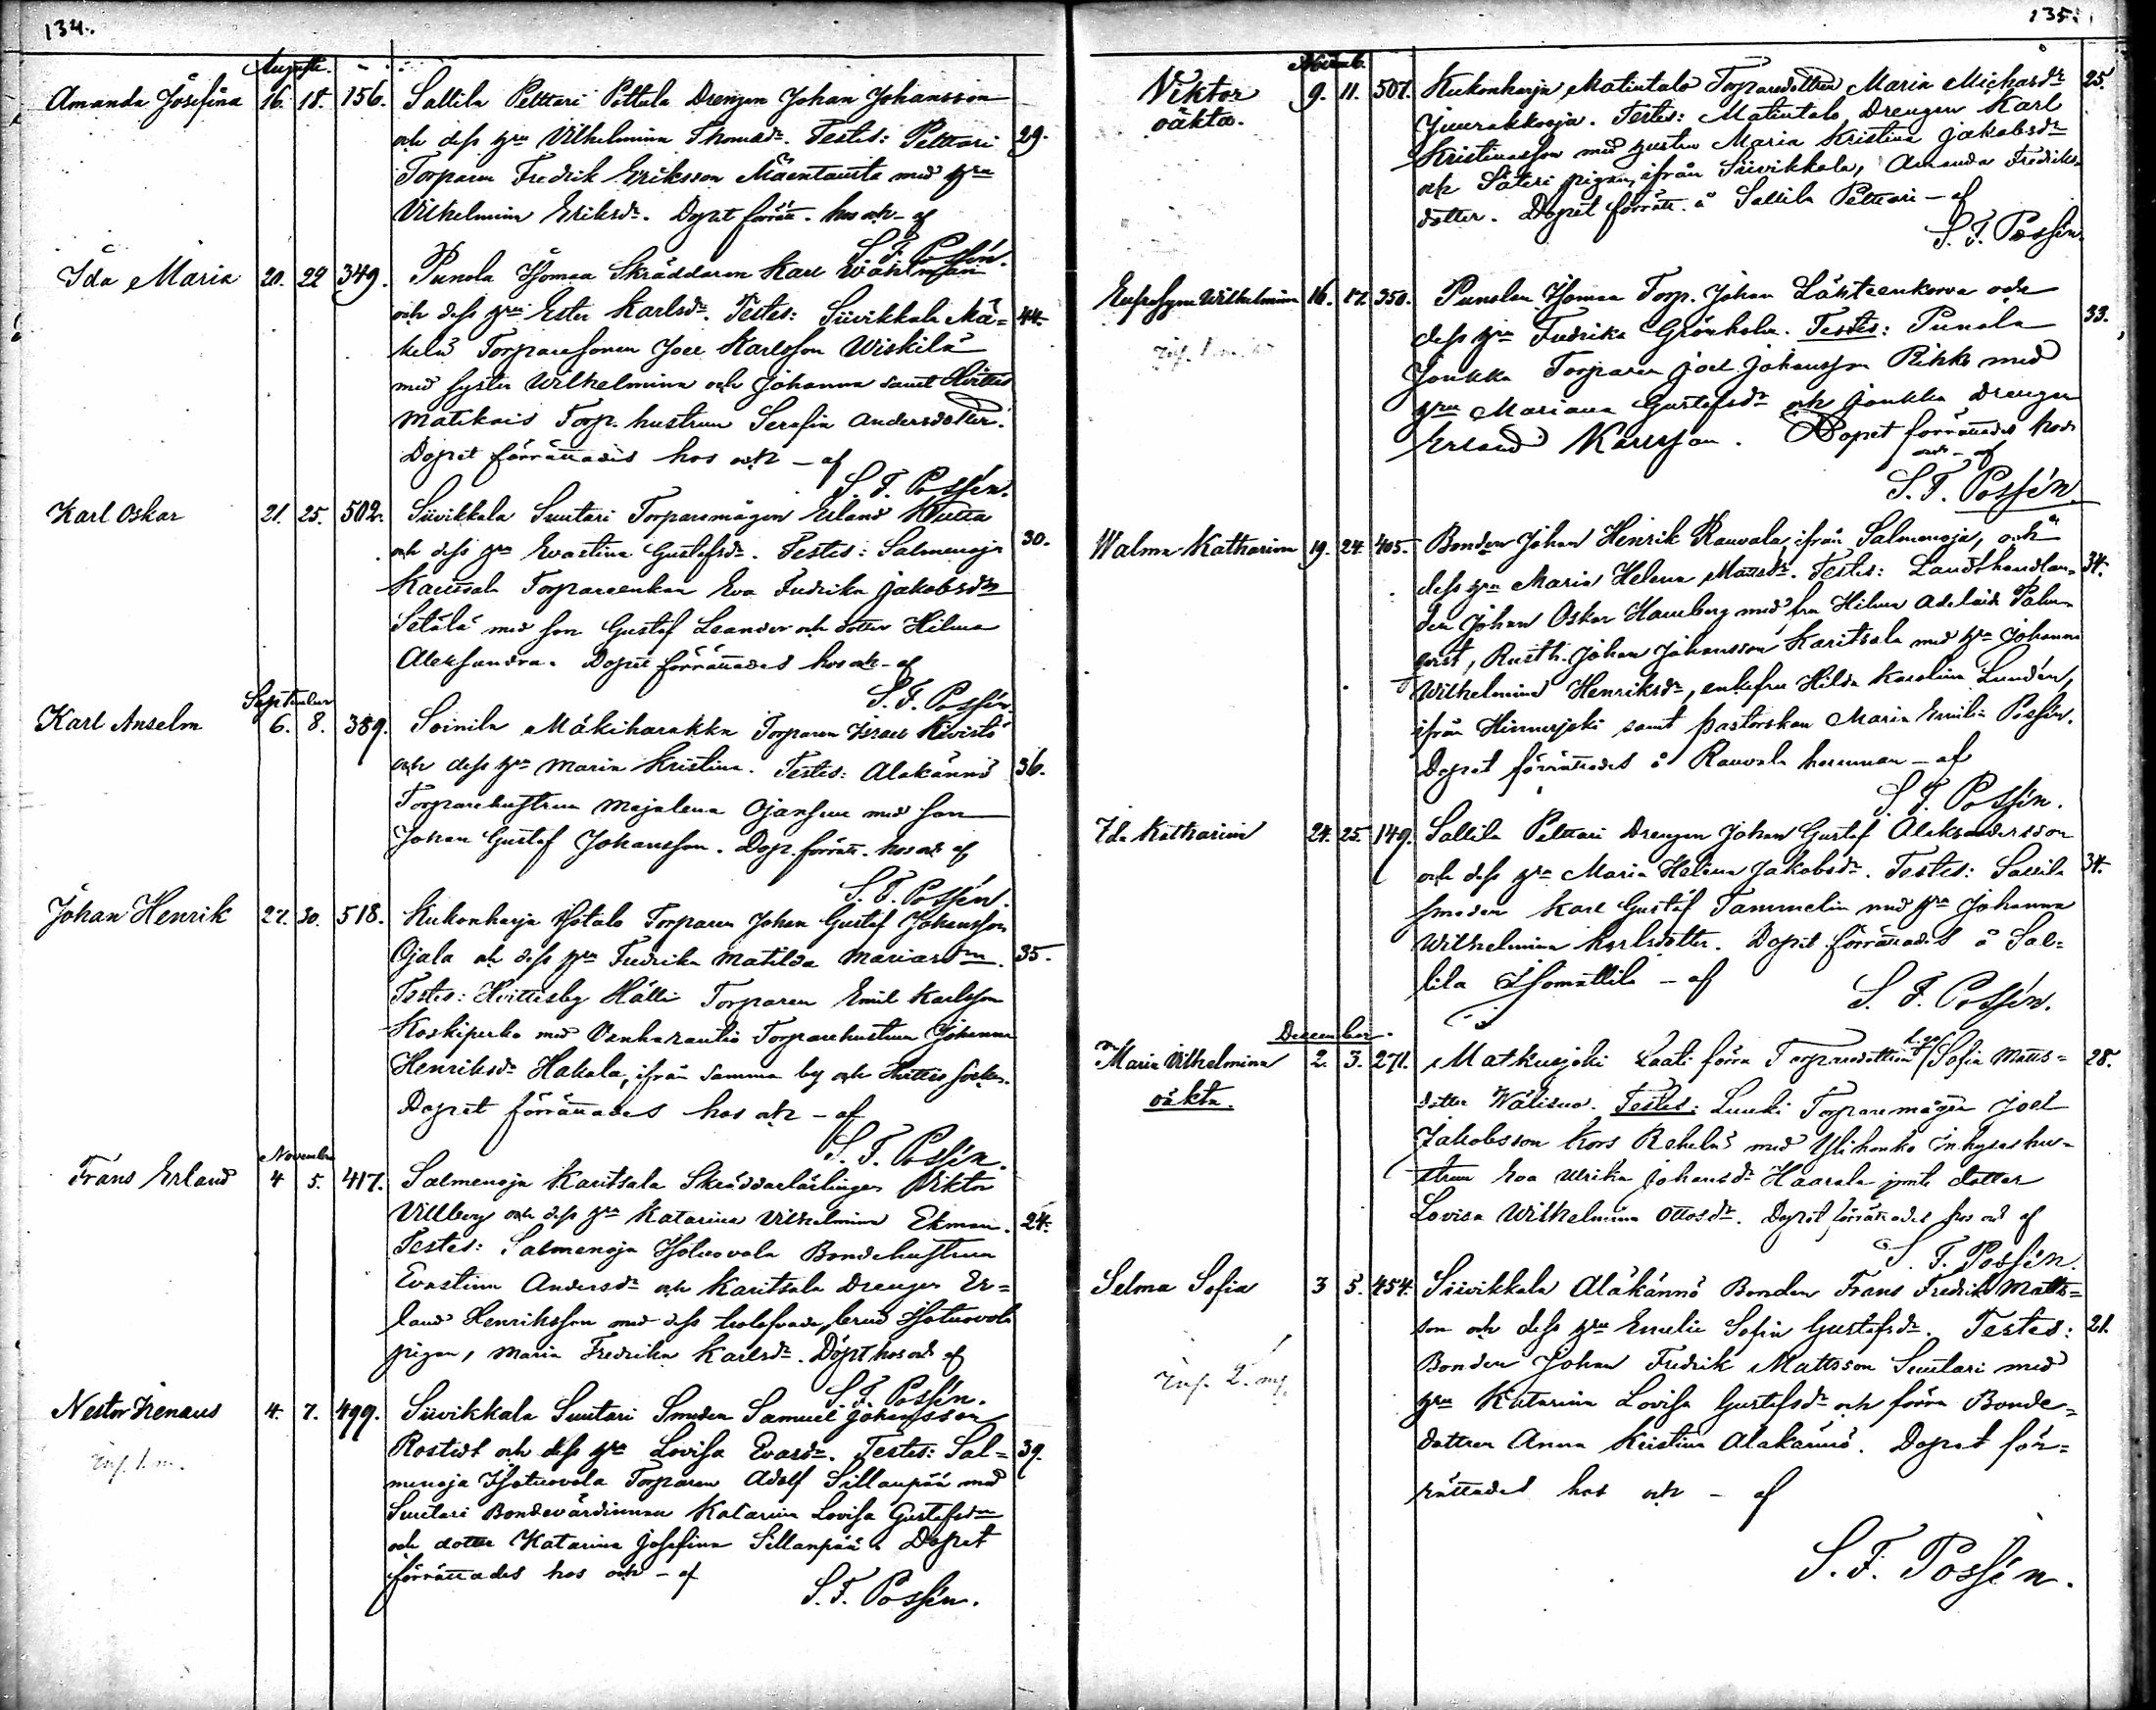 134.
Augusti.
Amanda Josefina 16. 18. 156. Sallila Pelttari Pettula Drengen Johan Johansson
och dess hru Vilhelmina Thomasdr. Testes: Pelttari 29.
Torparen Fredrik Eriksson Mäentausta med hru
Vilhelmina Eriksdr. Dopet förrätt. hos och - af
S. F. Possén.
Ida Maria 20. 22 349. Punola Isomaa Skräddaren Karl Wahlman
och dess hru Ester Karlsdr. Testes: Siivikkala Mä= 44.
kelä Torparesonen Joel Karlsson Wiskilä
med syster Wilhelmina och Johanna samt Hvittis
Matikais Torp. hustrun Serafia Andersdotter.
Dopet förrättades hos och - af
S. F. Possén.
Karl Oskar 21. 25. 502. Siivikkala Suutari Torparemågen Erland
och dess hru Evastina Gustafsdr. Testes: Salmenoja 30.
Karitsala Torpareenkan Eva Fredrika Jakobsdr
Setälä med son Gustaf Leander och dotter Hilma
Aleksandra. Dopet förrättades hos och - af
S. F. Possén.
September
Karl Anselm 6. 8. 389. Soinila Mäkiharakka Torparen Israel Kivistö
och dess hru Maria Kristina. Testes: Alakännö 36.
Torparehustrun Majalena Ojansuu med son
Johan Gustaf Johansson. Dop. förrätt. hos och af
S. F. Possén.
Johan Henrik 27. 30. 518. Kukonharja Isotalo Torparen Johan Gustaf Johansson
Ojala och dess hru Fredrika Matilda 35.
Testes: Hvittisby Hälli Torparen Emil Karlsson
med Torparehustrun Johanna
Henriksdr Hakala, ifrån samma by och Hvittis socken.
Dopet förrättades hos och - af
S. F. Possén.
November
Frans Erland 4 5. 417. Salmenoja Karitsala Skräddarlärlingen Viktor
Villberg och dess hru Katarina Vilhelmina Ekman. 24.
Testes: Salmenoja Isotuovola Bondehustrun
Evastina Andersdr och Karitsala Drengen Er=
land Henriksson med dess trolofvade brud Isotuovola
pigan, Maria Fredrika Karlsdr. Döpt hos och af
S. F. Possén.
Nestor Irenæus 4. 7. 499. Siivikkala Suutari Smeden Samuel Johansson
Rostedt och dess hru Lovisa Evasdr. Testes: Sal= 39.
menoja Isotuovola Torparen Adolf Sillanpää med
Suutari Bondevärdinnan Katarina Lovisa Gustafsdr
och dotter Katarina Josefina Sillanpää. Dopet
förrättades hos och - af
S. F. Possén.
135.
Novemb.
Viktor 9. 11. 507. Kukonharja Matintalo Torparedottren Maria Michelsdr 25.
oäkta. Juurakkooja. Testes: Matintalo Drengen Karl
Kristiansson med hustru Maria Kristina Jakobsdr
och Säteri pigan, ifrån Siivikkala, Amanda Fredriks
dotter. Dopet förrätt. å Sallila Pelttari - af
S. F. Possén.
Eufrosyne Wilhelmina 16. 17. 350. Punola Isomaa Torp. Johan Lähteenkorva och
dess hru Fredrika Grönholm. Testes: Punola 33.
Jonkka Torparen Joel Johansson Pihko med
hru Mariana Gustafsdr och Jonkka drengen
Erland Karlsson. Dopet förrättades hos
och - af
S. F. Possén
Walma Katharina 19. 24. 405. Bonden Johan Henrik Rauvala, ifrån Salmenoja, och
dess hru Maria Helena Mattsdr. Testes: Landthandlan= 34.
den Johan Oskar Hamberg med fru Hilma Adelaide Palm
qvist, Rusth. Johan Johansson Karitsala med hru Johanna
Wilhelmina Henriksdr, enkefru Hilda Karolina Lundén,
ifrån Hinnerjoki samt pastorskan Maria Emilia Possén.
Dopet förrättades å Rauvala hemman - af
S. F. Possén.
Ida Katharina 24. 25. 149. Sallila Pelttari Drengen Johan Gustaf Aleksandersson
och dess hru Maria Helena Jakobsdr. Testes: Sallila 34.
smeden Karl Gustaf Tammelin med hru Johanna
Wilhelmina Karlsdotter. Dopet förrättades å Sal=
lila Isomattila - af
S. F. Possén.
December.
Maria Wilhelmina 2. 3. 271. Matkusjoki Laati förra Torparedottren Sofia Matts= 28.
oäkta. dotter Wälisuo. Testes: Luuki Torparemågen Joel
Jakobsson Kors med Ylihonko Inhyses hu=
strun Eva Ulrika Johansdr Haarala jemte dotter
Lovisa Wilhelmina Ottosdr. Dopet förrättades hos och af
S. F. Possén.
Selma Sofia 3 5. 454. Siivikkala Alakännö Bonden Frans Fredrik Matts=
son och dess hru Emelie Sofia Gustafsdr. Testes: 21.
Bonden Johan Fredrik Mattsson Suutari med
hru Katarina Lovisa Gustafsdr och förra Bonde=
dottren Anna Kristina Alakännö. Dopet för=
rättades hos och - af
S. F. Possén.